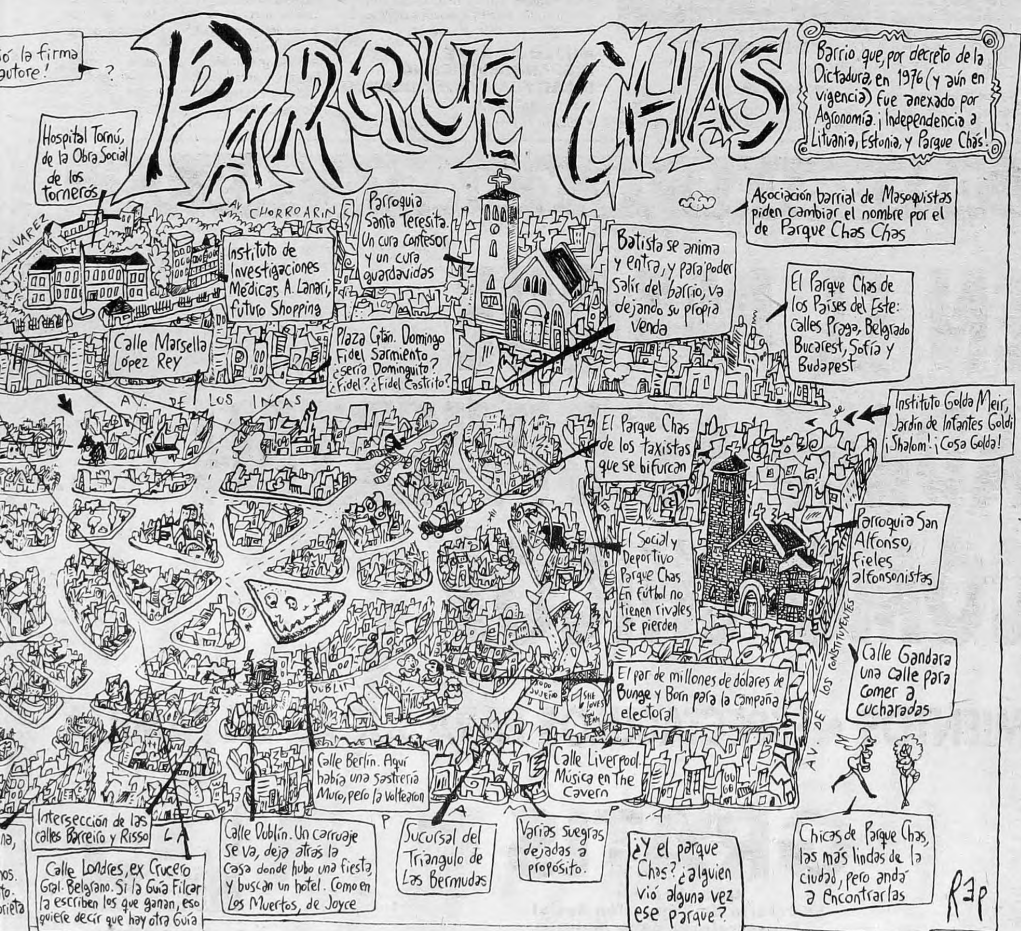 ió la firma
autore!
?
PARQUE CHAS
Barrio que, por decreto de la
Dictadura, en 1976 (y aún en
vigencia) fue anexado por
Agronomía. ¡Independencia a
Lituania, Estonia, y Parque Chas!
Hospital Tornú,
de la Obra Social
de los
torneros
ALVAREZ
AV. CHORROARIN
Instituto de
Investigaciones
Médicas A. Lanari,
futuro Shopping
Parroquia
Santa Teresita.
Un cura Confesor
y un cura
guardavidas
Asociación barrial de Masoquistas
piden cambiar el nombre por el
de Parque Chas Chas
Batista se anima
y entra, y para poder
salir del barrio, va
dejando su propia
venda
El Parque Chas de
los Países del Este:
calles Praga, Belgrado
Bucarest, Sofía y
Budapest
Calle Marsella
López Rey
Plaza Cptán. Domingo
Fidel Sarmiento,
¿sería Dominguito?
¿Fidel? ¿Fidel Castrito?
AV. DE LOS INCAS
Instituto Golda Meir,
Jardín de Infantes Goldi
¡Shalom! ¡Cosa Golda!
El Parque Chas
de los taxistas
que se bifurcan
Parroquia San
Alfonso,
fieles
alfonsonistas
El Social y
Deportivo
Parque Chas
En fútbol no
tienen rivales
Se pierden
AV. DE LOS CONSTITUYENTES
Calle Gandara
una calle para
comer a
cucharadas
El par de millones de dólares de
Bunge y Born para la campaña
electoral
DUBLIN
TODO
JUJEÑO
SHE
LOVES
YEAH
Calle Berlín. Aquí
había una sastrería
Muro, pero la voltearon
Calle Liverpool.
Música en The
Cavern
Intersección de las
calles Barreiro y Risso
LA
P A M P A
Calle Londres, ex Crucero
Gral. Belgrano. Si la Guía Filcar
la escriben los que ganan, eso
quiere decir que hay otra Guía
Calle Dublín. Un carruaje
se va, deja atrás la
casa donde hubo una fiesta,
y buscan un hotel. Como en
Los Muertos, de Joyce
Sucursal del
Triangulo de
Las Bermudas
Varias suegras
dejadas a
propósito.
¿Y el parque
Chas? ¿alguien
vió alguna vez
ese parque?
Chicas de Parque Chas,
las más lindas de la
ciudad, pero andá
a encontrarlas
na,
nos.
to.
orieta
REP